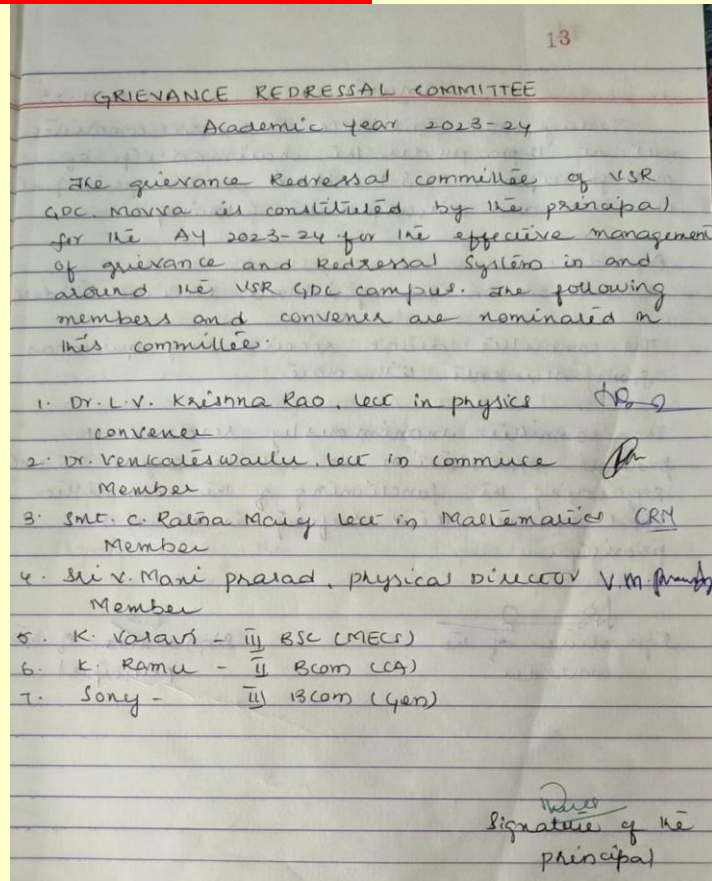 13
GRIEVANCE REDRESSAL COMMITTEE
Academic year 2023-24
The grievance Redressal committee of VSR
GDC, Movva is constituted by the principal
for the AY 2023-24 for the effective management
of grievance and Redressal System in and
around the VSR GDC campus. The following
members and convener are nominated in
this committee.
1. Dr. L.V. Krishna Rao, lect in physics
convener
2. Dr. Venkateswarlu, lect in commerce
Member
3. Smt. C. Ratna Mary lect in Mathematics CRM
Member
4. Sri V. Mani prasad, physical Director V.M.
Member
5. K. Vasavi - III BSC (MECS)
6. K. RAMU - II Bcom (CA)
7. Sony - III BCom (Gen)
Signature of the
principal